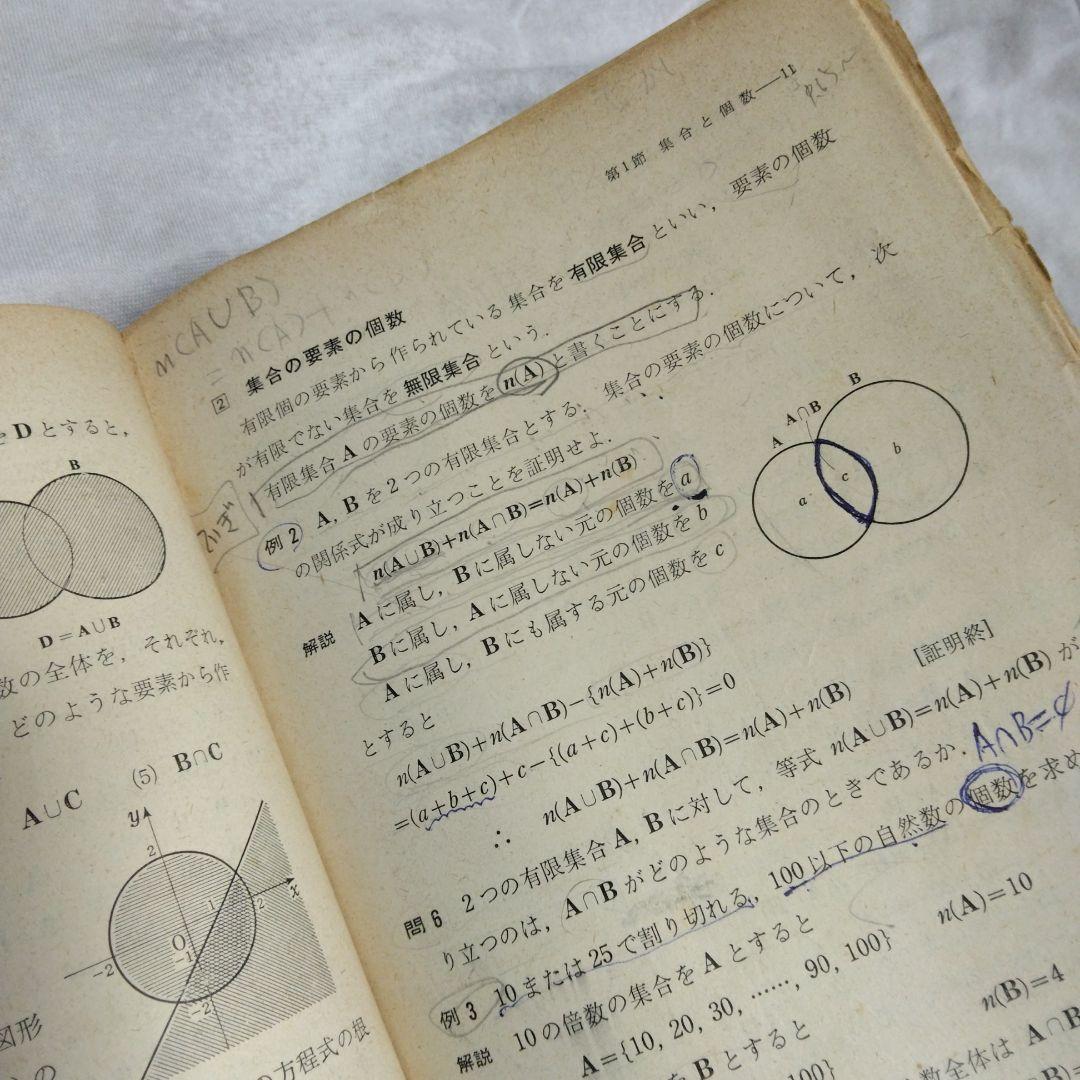 をDとすると,
B
D=A∪B
数の全体を, それぞれ,
どのような要素から作
(5) B∩C
A∪C
y
2
1
x
-2
O
2
-1
-2
図形
の方程式の根
第1節 集合と個数—11
n(A∪B)
= n(A)+
2 集合の要素の個数
有限個の要素から作られている集合を有限集合といい, 要素の個数
が有限でない集合を無限集合という.
有限集合Aの要素の個数をn(A)と書くことにする.
例2 A, Bを2つの有限集合とする. 集合の要素の個数について, 次
の関係式が成り立つことを証明せよ.
n(A∪B)+n(A∩B)=n(A)+n(B)
解説 Aに属し, Bに属しない元の個数をa
Bに属し, Aに属しない元の個数をb
Aに属し, Bにも属する元の個数をc
とすると
A
A∩B
B
a
c
b
n(A∪B)+n(A∩B)-{n(A)+n(B)}
=(a+b+c)+c-{(a+c)+(b+c)}=0
∴ n(A∪B)+n(A∩B)=n(A)+n(B)
[証明終]
問6 2つの有限集合A, Bに対して, 等式 n(A∪B)=n(A)+n(B)が
り立つのは, A∩Bがどのような集合のときであるか.
A∩B=φ
例3 10または25で割り切れる, 100以下の自然数の個数を求め
解説 10の倍数の集合をAとすると
A={10, 20, 30, ……, 90, 100}
n(A)=10
とすると
100}
n(B)=4
数全体は A∩B